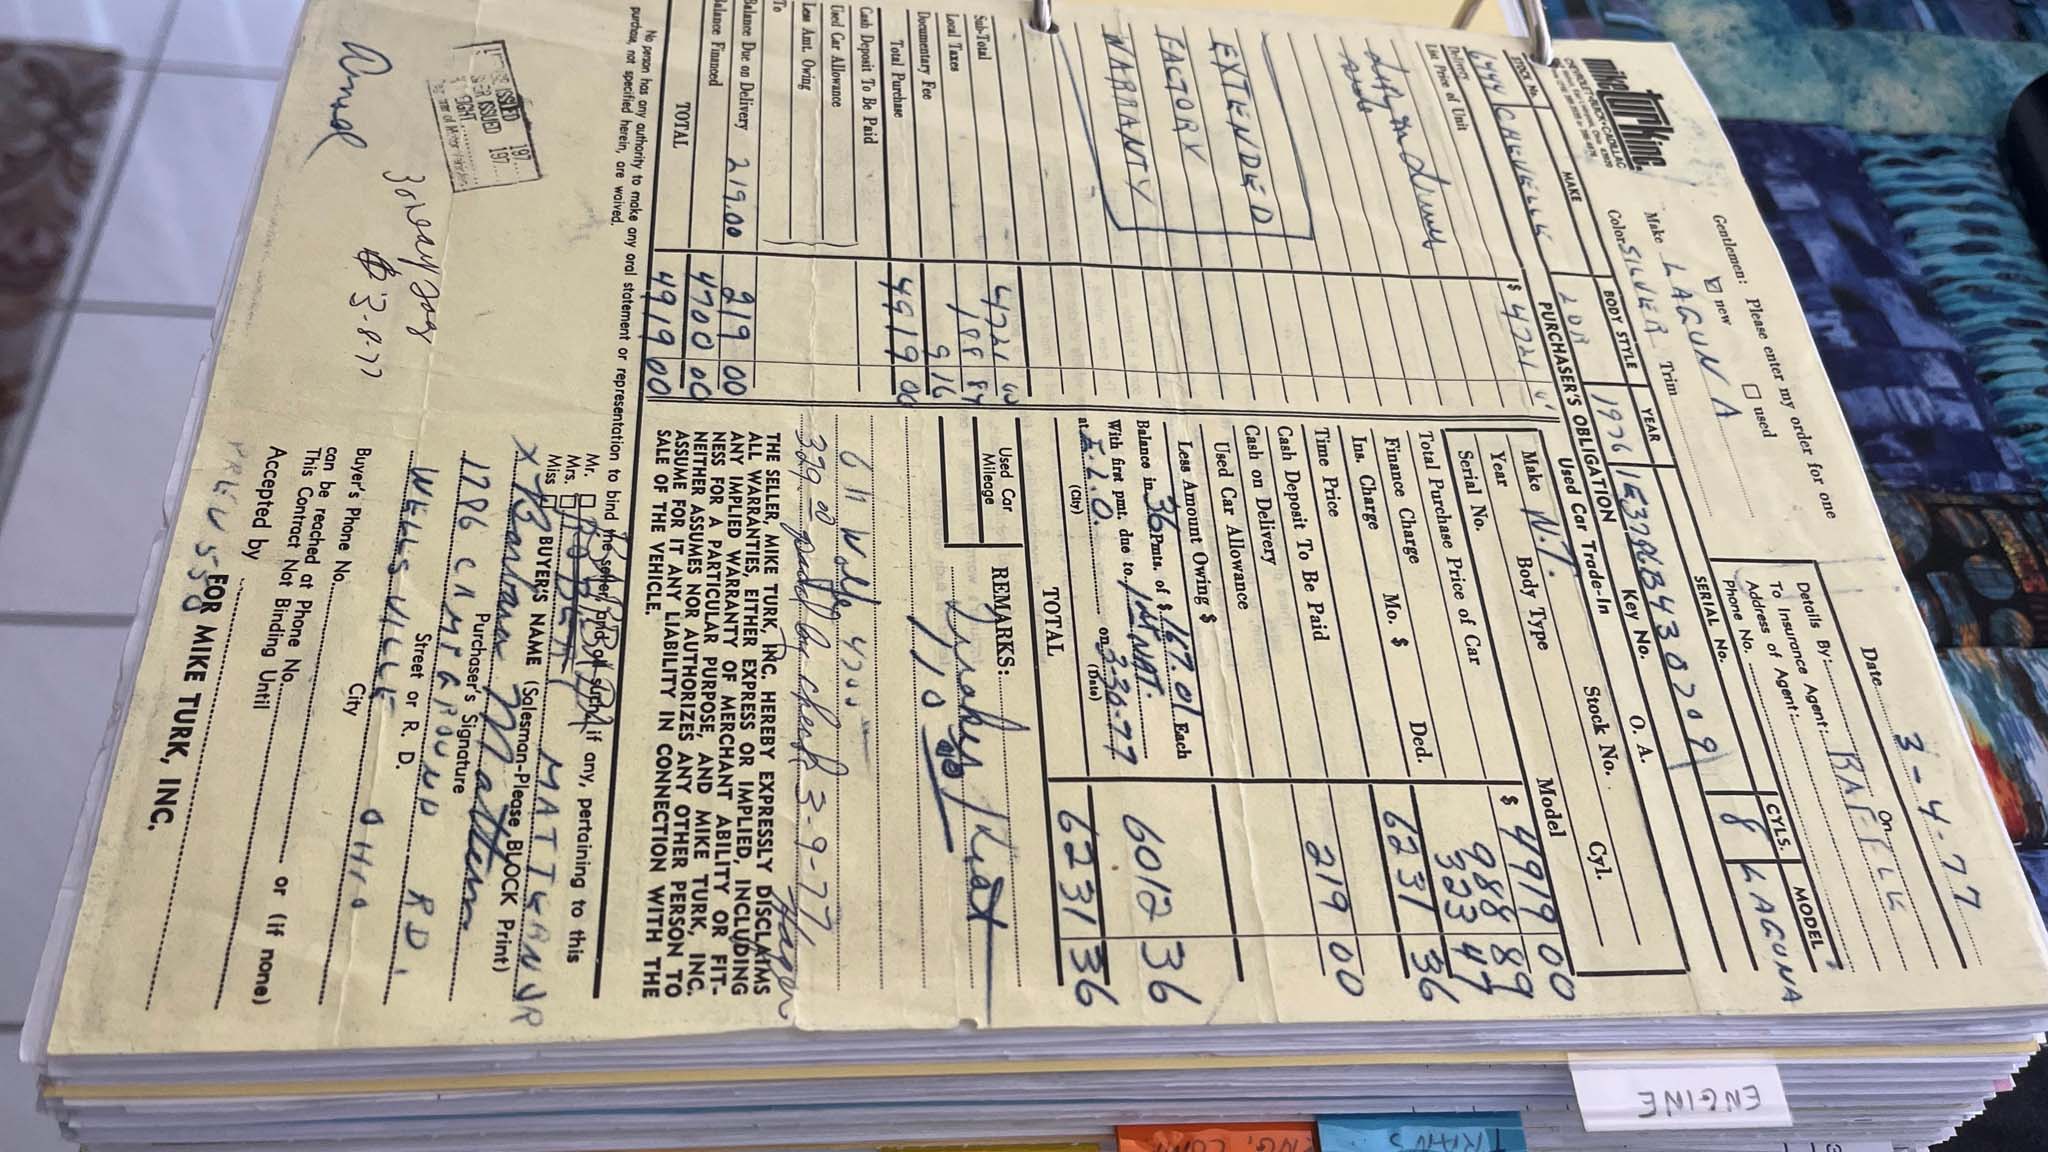 Date 3-4-77
mike turk inc.
CHEVROLET-BUICK-CADILLAC
Gentlemen: Please enter my order for one
☑ new ☐ used
Make LAGUNA
Color SILVER Trim
On
Details By: RAFFLE
To Insurance Agent:
Address of Agent:
Phone No.
STOCK No. MAKE BODY STYLE YEAR SERIAL NO. CYLS. MODEL
6444 CHEVELLE 2DR 1976 1E37 8 LAGUNA
PURCHASER'S OBLIGATION
Delivery
List Price of Unit $ 4721
EXTENDED
FACTORY
WARRANTY
Sub-Total 4721 00
Local Taxes 188 84
Documentary Fee 9 16
Total Purchase 4919 00
Cash Deposit To Be Paid
Used Car Allowance
Less Amt. Owing
To
Balance Due on Delivery 219.00 219 00
Balance Financed 4700 00
TOTAL 4919 00
Used Car Trade-In Key No. O. A.
Stock No. Cyl.
Make N.T. Body Type Model
Year
Serial No.
Total Purchase Price of Car $ 4919 00
988 89
323 47
Finance Charge Mo. $ Ded. 6231 36
Ins. Charge
Time Price
Cash Deposit To Be Paid 219 00
Cash on Delivery
Used Car Allowance
Less Amount Owing $
Balance in 36 Pmts. of $ 167.01 Each 6012 36
With first pmt. due to 1st NAT.
at E.L.O. on 3-30-77
(City) (Date)
TOTAL 6231 36
Used Car
Mileage
REMARKS:
3-9-77
THE SELLER, MIKE TURK, INC. HEREBY EXPRESSLY DISCLAIMS
ALL WARRANTIES, EITHER EXPRESS OR IMPLIED, INCLUDING
ANY IMPLIED WARRANTY OF MERCHANT ABILITY OR FIT-
NESS FOR A PARTICULAR PURPOSE, AND MIKE TURK, INC.
NEITHER ASSUMES NOR AUTHORIZES ANY OTHER PERSON TO
ASSUME FOR IT ANY LIABILITY IN CONNECTION WITH THE
SALE OF THE VEHICLE.
No person has any authority to make any oral statement or representation to bind the seller, and such, if any, pertaining to this
purchase, not specified herein, are waived.
Mr. ☐
Mrs. ☐
Miss ☐
BUYER'S NAME (Salesman-Please BLOCK Print)
Purchaser's Signature
1786 CAMPGROUND RD.
Street or R. D.
WELLSVILLE OHIO
City
Buyer's Phone No.
can be reached at Phone No. or (if none)
This Contract Not Binding Until
Accepted by
FOR MIKE TURK, INC.
30 day tag
3-8-77
ISSUED 197
ISSUED 197
ENGINE
TRANS